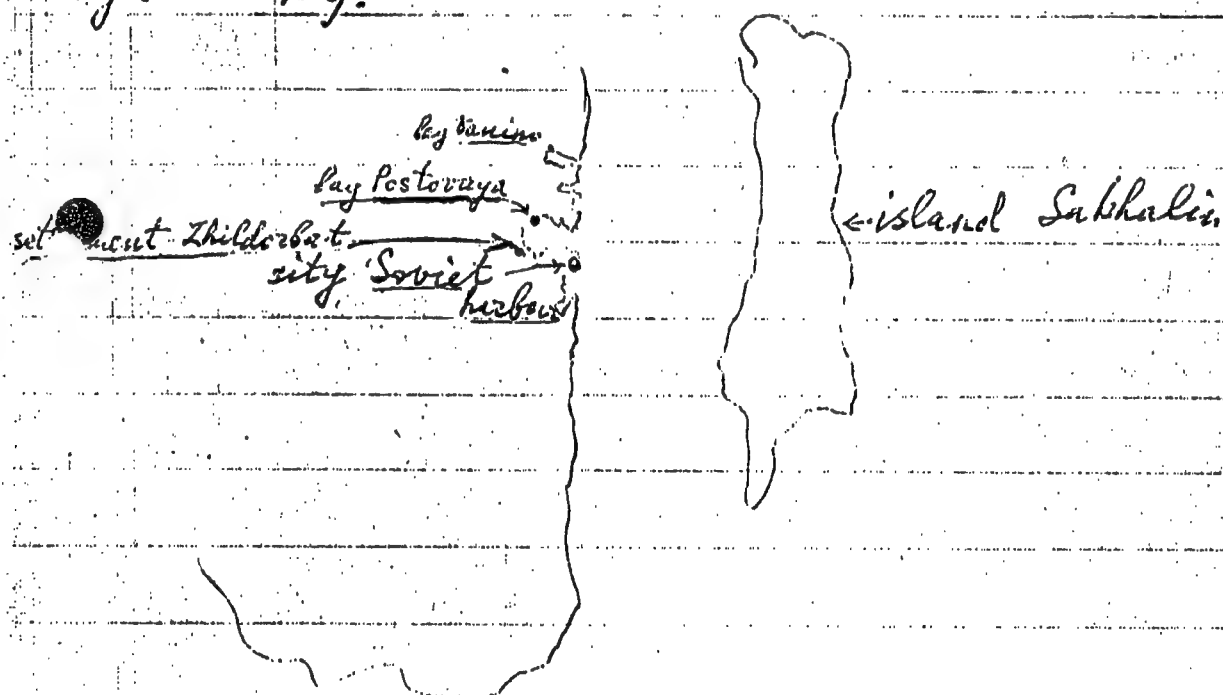 bay Vanino
bay Postovaya
settlement Zhildorbat.
sity Soviet
harbour
island Sakhalin